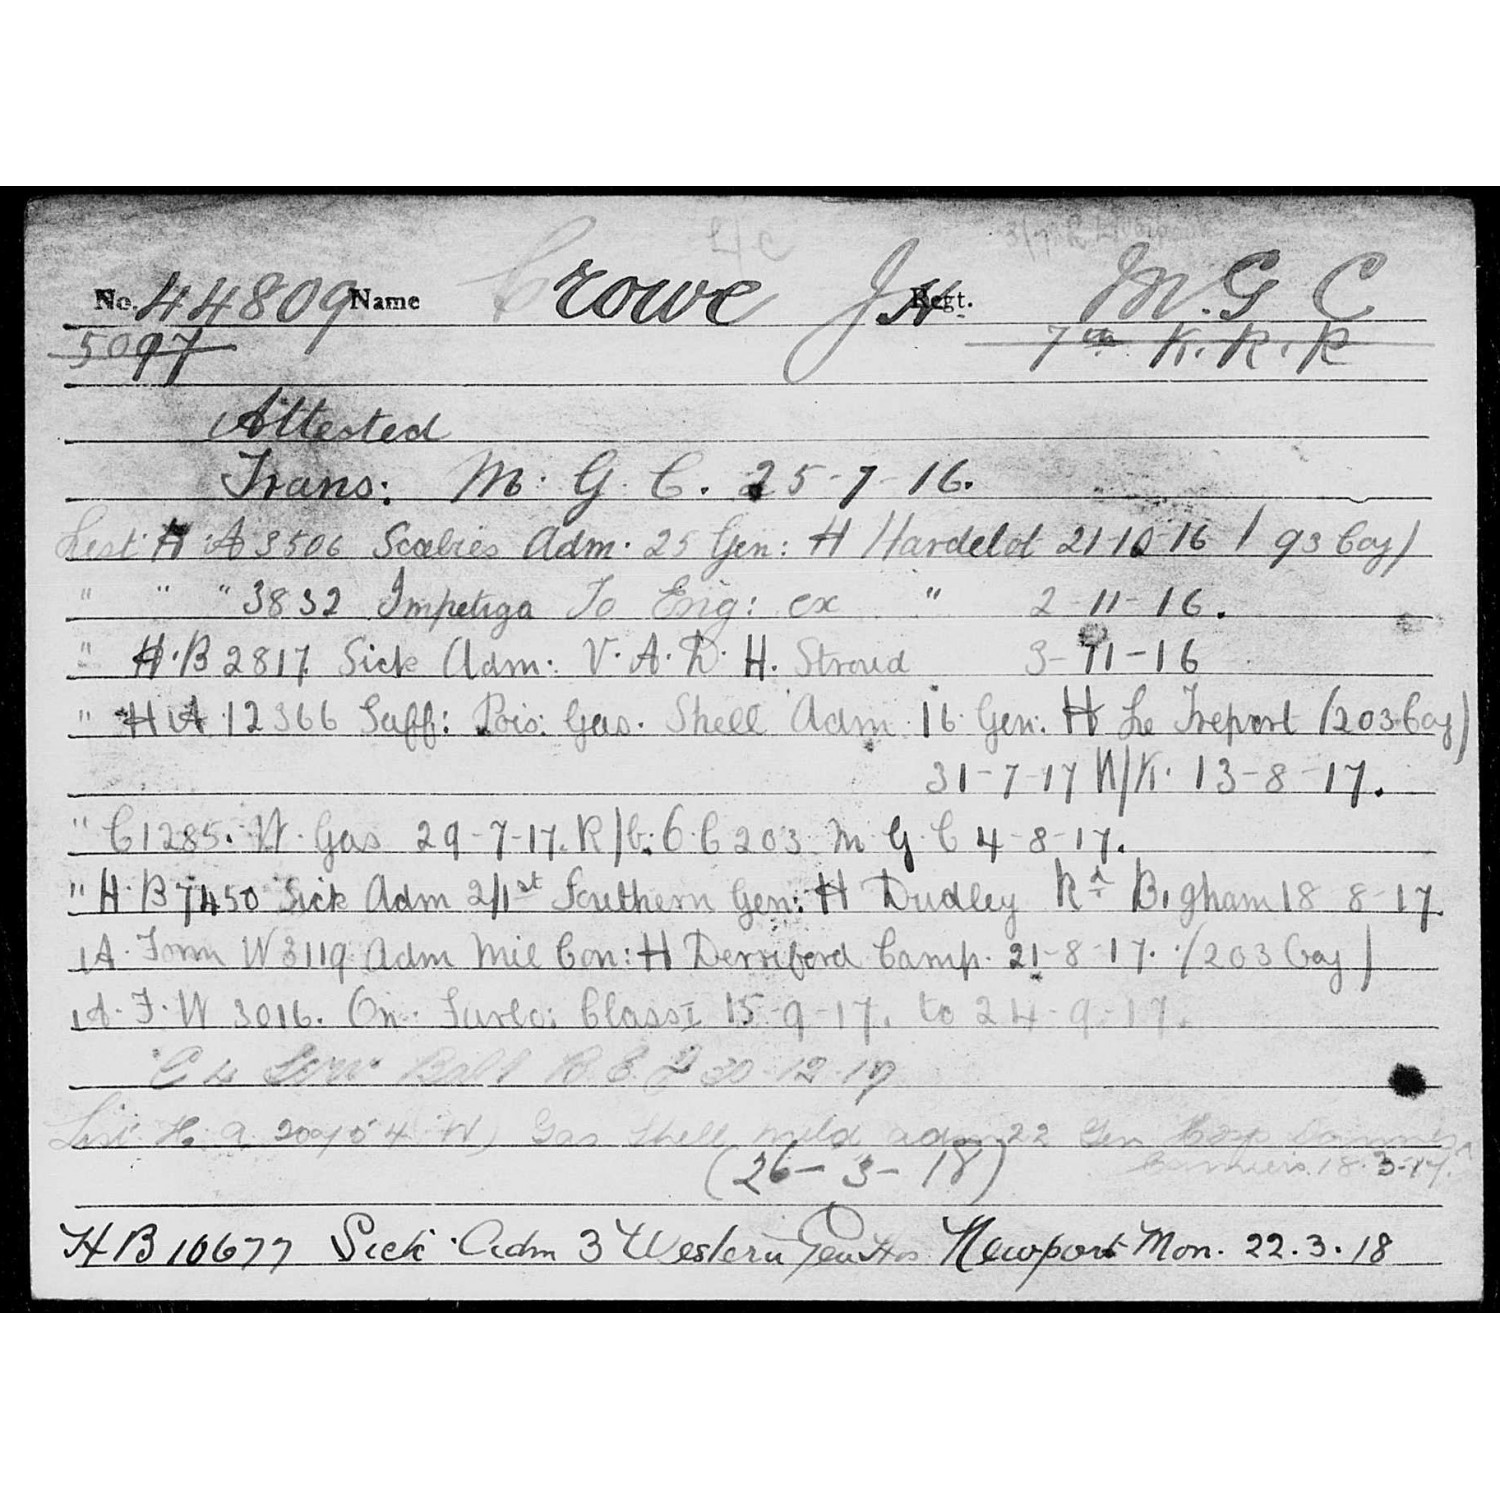 L/C
No. 44809 Name Crowe J H Regt. M.G C
5097 7th K.R.R
Attested
Trans: M.G.C. 25-7-16.
List H A 3506 Scabies Adm. 25 Gen: H Hardelot 21-10-16 (93 Coy)
" " " 3832 Impetiga To Eng: ex " 2-11-16.
" H.B 2817 Sick Adm: V.A.D.H. Stroud 3-11-16
" H A 12366 Suff: Pois: Gas. Shell Adm 16 Gen: H Le Treport (203 Coy)
31-7-17 N/K. 13-8-17.
" C1285. W. Gas 29-7-17. 203 M G C 4-8-17.
" H.B 7450 Sick Adm 2/1st Southern Gen: H Dudley Rd B'gham 18 8-17
A. Form W3119 Adm Mil Con: H Derriford Camp. 21-8-17. (203 Coy)
A.F.W 3016. On Furlo: Class I 15-9-17. to 24-9-17.
B.E.F 30-12-17
List H. A W) Gas Shell mild adm 22 Gen Hosp
(26-3-18) Camiers 18.3-17.
HB 10677 Sick Adm 3 Western Gen Hos Newport Mon. 22.3.18